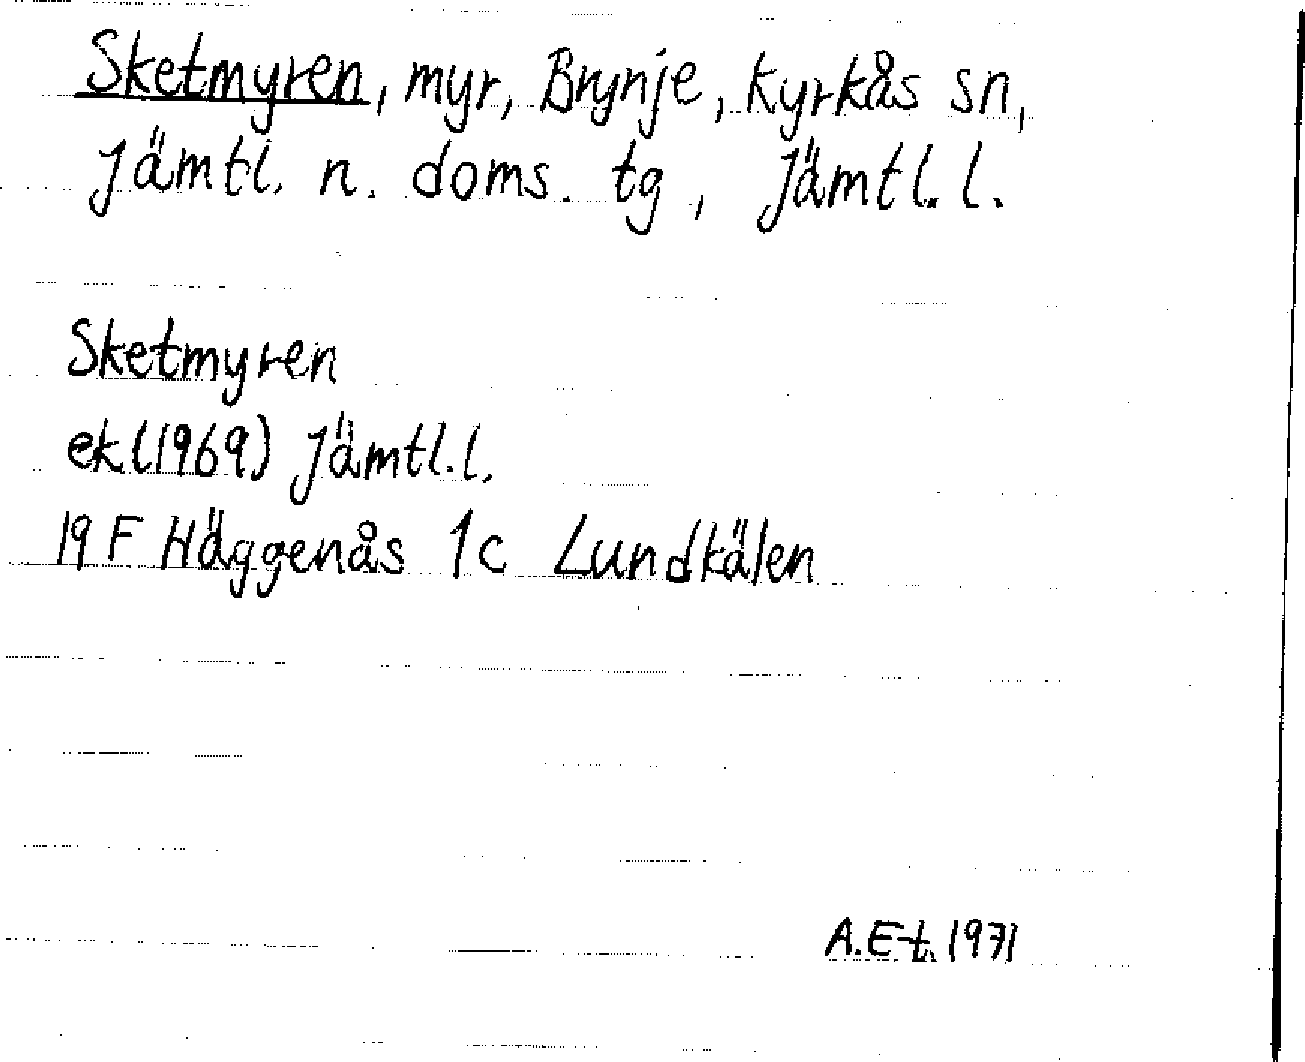 Sketmyren, myr, Brynje, Kyrkås sn,
Jämtl. n. doms. tg, Jämtl. l.
Sketmyren
ek (1969) Jämtl. l.
19 F Häggenås 1c Lundkälen
A.E-t. 1971